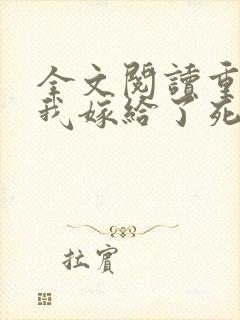 全文閱讀重
我嫁給了死
拉賓